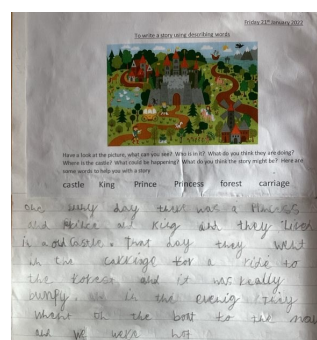 Friday 21st January 2022
To write a story using describing words
Have a look at the picture, what can you see? Who is in it? What do you think they are doing?
Where is the castle? What could be happening? What do you think the story might be? Here are
some words to help you with a story
castle King Prince Princess forest carriage
one day there was a Princess
and Prince and King and they lived
in a old castle. That day they went
in the carriage for a ride to
the forest and it was really
bumpy. in the evenig They
whent on the boat to the
and we were hot